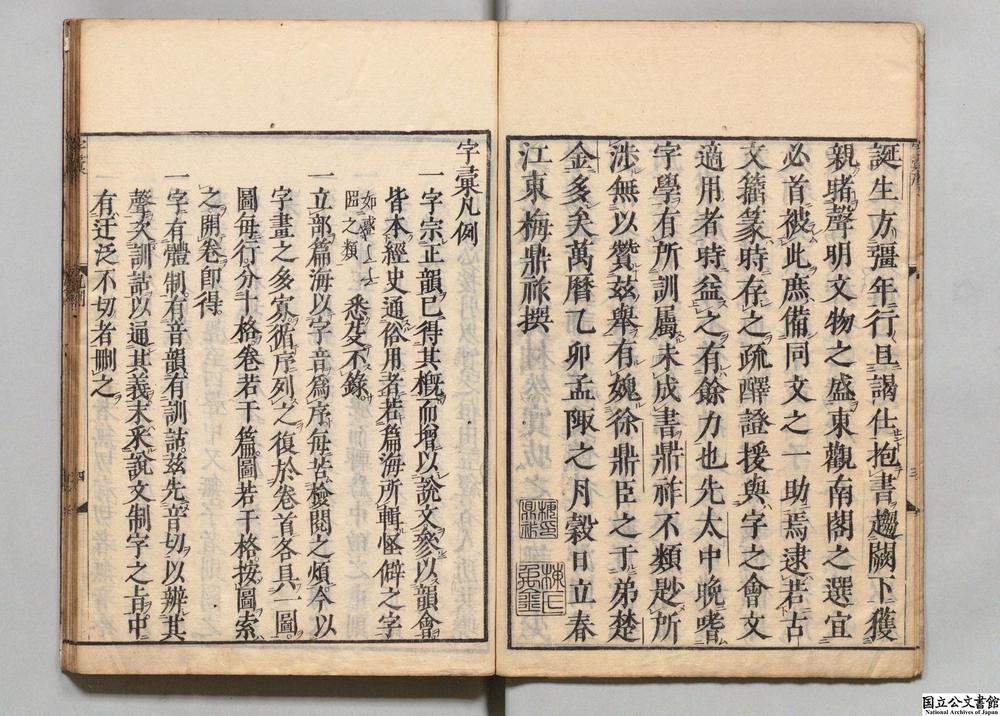 誕生方彊年行且謁仕抱書趨闕下獲
親睹聲明文物之盛東觀南閣之選宜
必首被此庶備同文之一助焉逮若古
文籒篆時存之疏釋證援與字之會文
適用者時益之有餘力也先太中晩嗜
字學有所訓屬未成書鼎祚不類尠所
洙無以贊玆舉有媿徐鼎臣之于弟楚
金多矣萬曆乙卯孟陬之月穀日立春
江東梅鼎祚撰
字彙凡例
一字宗正韻已得其槪而增以說文參以韻會
皆本經史通俗用者若篇海所輯怪僻之字
之類悉芟不錄
一立部篇海以字音爲序每苦檢閱之煩今以
字畫之多寡循序列之復於卷首各具一圖
圖每行分十格卷若干篇圖若干格按圖索
之開卷卽得
一字有體制有音韻有訓詁玆先音切以辨其
聲次訓詁以通其義末采說文制字之旨中
有迂泛不切者刪之
三
四
国立公文書館
National Archives of Japan